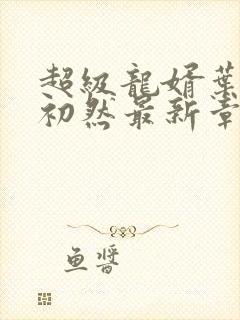 超級龍婿葉
初然最新章
鱼醬